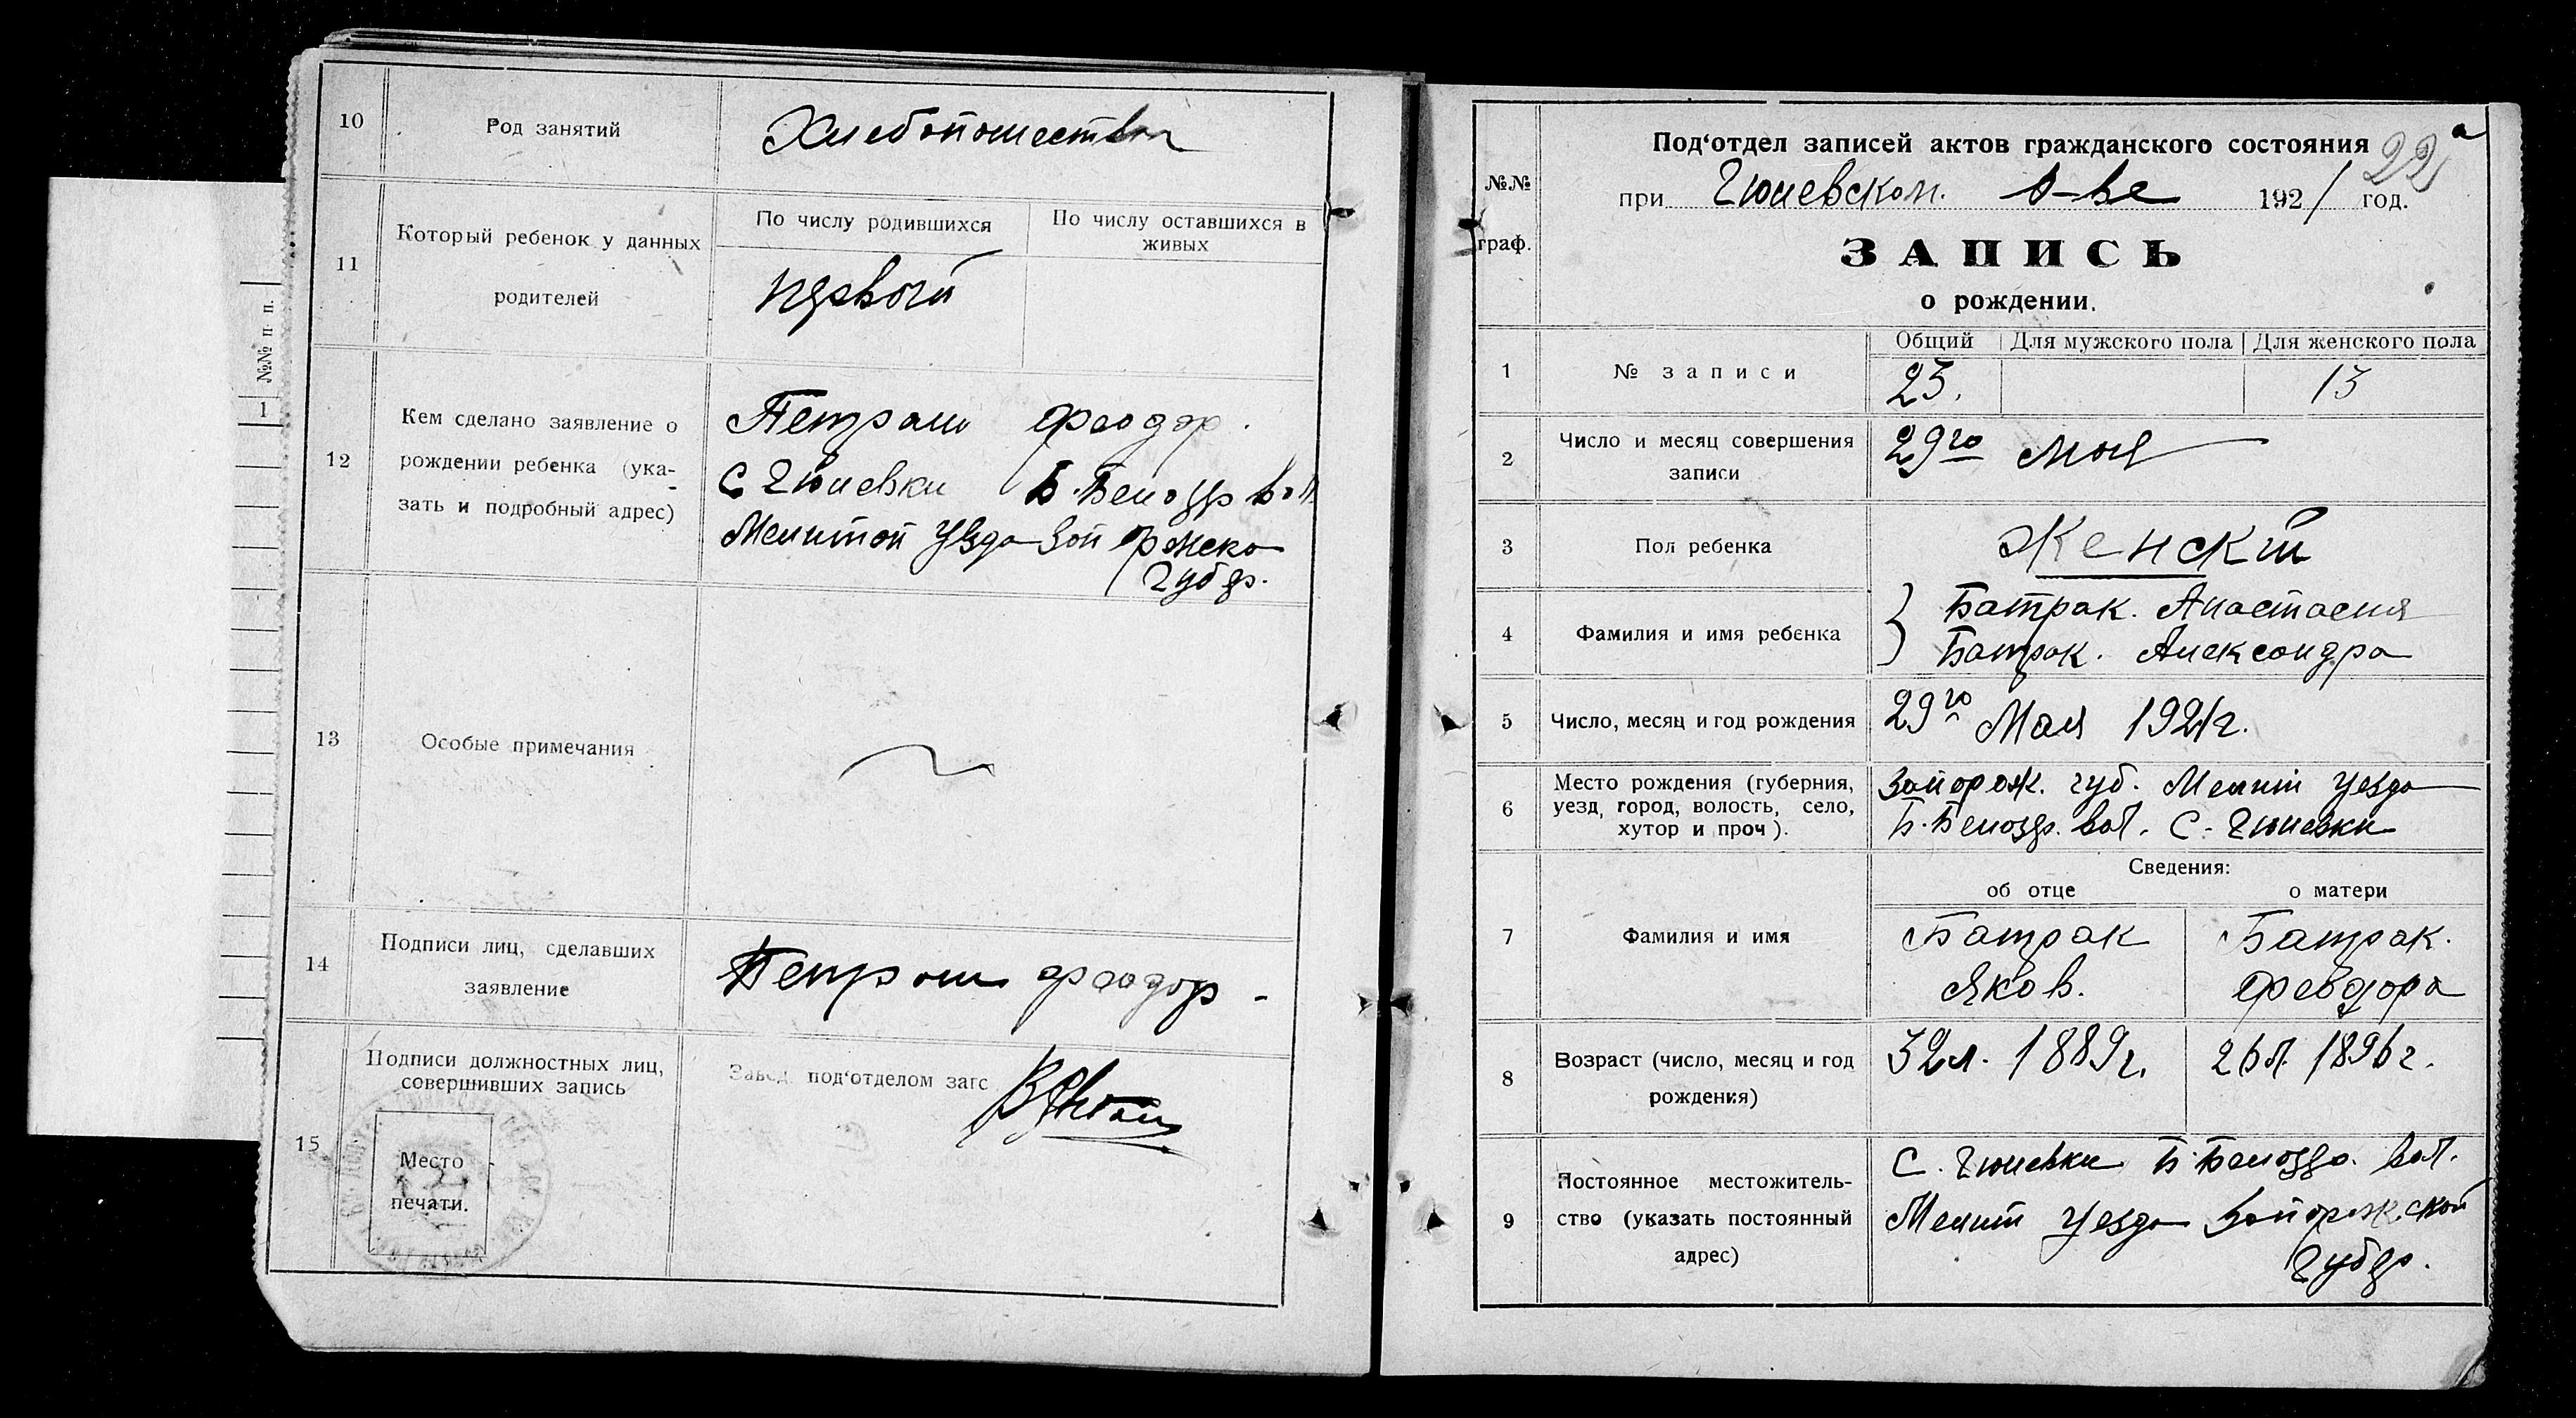 10
Род занятий
Хлебопашество
11
Который ребенок у данных
родителей
По числу родившихся
По числу оставшихся в
живых
первый
№№ п. п.
1
12
Кем сделано заявление о
рождении ребенка (ука-
зать и подробный адрес)
Петраш Феодор.
С Гюневки Б. Белозер вол
Мелитоп Уезда Зап рожско
Губер.
13
Особые примечания
14
Подписи лиц, сделавших
заявление
Петраш Феодор -
15
Подписи должностных лиц,
совершивших запись
Место
печати.
Завед. под‘отделом загс
№№
граф.
Под‘отдел записей актов гражданского состояния
22а
при Гюневском. о-ве 1921 год.
ЗАПИСЬ
о рождении.
1
№ записи
Общий
Для мужского пола
Для женского пола
23.
13
2
Число и месяц совершения
записи
29го мая
3
Пол ребенка
Женский
4
Фамилия и имя ребенка
Батрак. Анастасия
Батрак. Александра
5
Число, месяц и год рождения
29го Мая 1921г.
6
Место рождения (губерния,
уезд, город, волость, село,
хутор и проч).
Запорож. губ. Мелит Уезда
Б. Белозер. вол. С. Гюневки
7
Фамилия и имя
Сведения:
об отце
о матери
Батрак
Яков.
Батрак.
Феодора
8
Возраст (число, месяц и год
рождения)
32л. 1889г.
26л. 1896г.
9
Постоянное местожитель-
ство (указать постоянный
адрес)
С. Гюневки Б. Белозер. вол.
Мелит Уезда Запорожской
Губер.